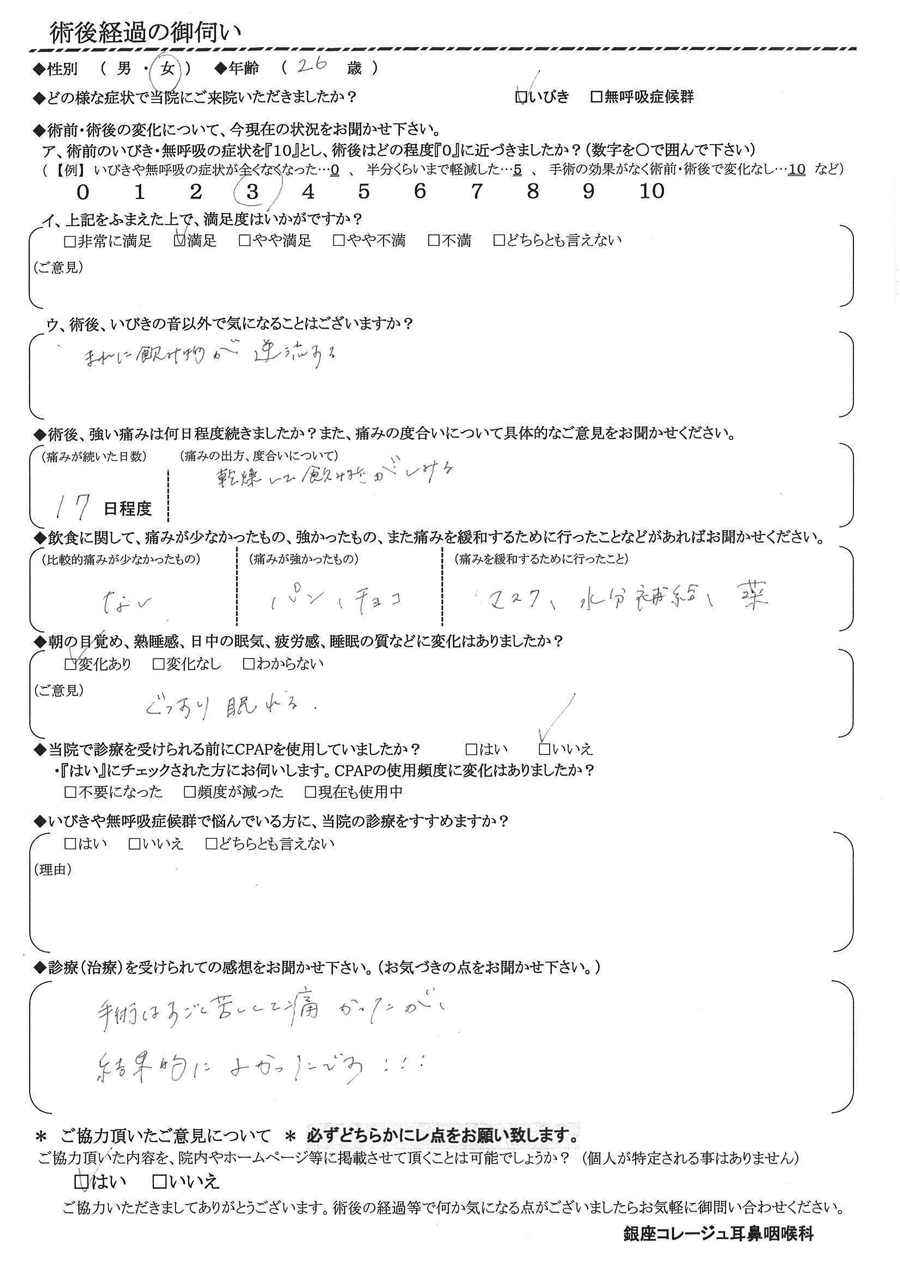 術後経過の御伺い
◆性別 ( 男 ・ 女 ) ◆年齢 ( 26 歳 )
◆どの様な症状で当院にご来院いただきましたか? ☑いびき □無呼吸症候群
◆術前・術後の変化について、今現在の状況をお聞かせ下さい。
ア、術前のいびき・無呼吸の症状を『10』とし、術後はどの程度『0』に近づきましたか?(数字を○で囲んで下さい)
(【例】いびきや無呼吸の症状が全くなくなった…0 、 半分くらいまで軽減した…5 、 手術の効果がなく術前・術後で変化なし…10 など)
0 1 2 3 4 5 6 7 8 9 10
イ、上記をふまえた上で、満足度はいかがですか?
□非常に満足 ☑満足 □やや満足 □やや不満 □不満 □どちらとも言えない
(ご意見)
ウ、術後、いびきの音以外で気になることはございますか?
まれに飲み物が 逆流する
◆術後、強い痛みは何日程度続きましたか?また、痛みの度合いについて具体的なご意見をお聞かせください。
(痛みが続いた日数) (痛みの出方、度合いについて)
乾燥して飲み物がしみる
17 日程度
◆飲食に関して、痛みが少なかったもの、強かったもの、また痛みを緩和するために行ったことなどがあればお聞かせください。
(比較的痛みが少なかったもの) (痛みが強かったもの) (痛みを緩和するために行ったこと)
ない パン、チョコ マスク、水分補給、薬
◆朝の目覚め、熟睡感、日中の眠気、疲労感、睡眠の質などに変化はありましたか?
☑変化あり □変化なし □わからない
(ご意見)
ぐっすり眠れる.
◆当院で診療を受けられる前にCPAPを使用していましたか? □はい ☑いいえ
・『はい』にチェックされた方にお伺いします。CPAPの使用頻度に変化はありましたか?
□不要になった □頻度が減った □現在も使用中
◆いびきや無呼吸症候群で悩んでいる方に、当院の診療をすすめますか?
□はい □いいえ □どちらとも言えない
(理由)
◆診療(治療)を受けられての感想をお聞かせ下さい。(お気づきの点をお聞かせ下さい。)
手術はすごく苦しくて痛かったが、
結果的によかったです!!!
＊ ご協力頂いたご意見について ＊ 必ずどちらかにレ点をお願い致します。
ご協力頂いた内容を、院内やホームページ等に掲載させて頂くことは可能でしょうか? (個人が特定される事はありません)
☑はい □いいえ
ご協力いただきましてありがとうございます。術後の経過等で何か気になる点がございましたらお気軽に御問い合わせください。
銀座コレージュ耳鼻咽喉科